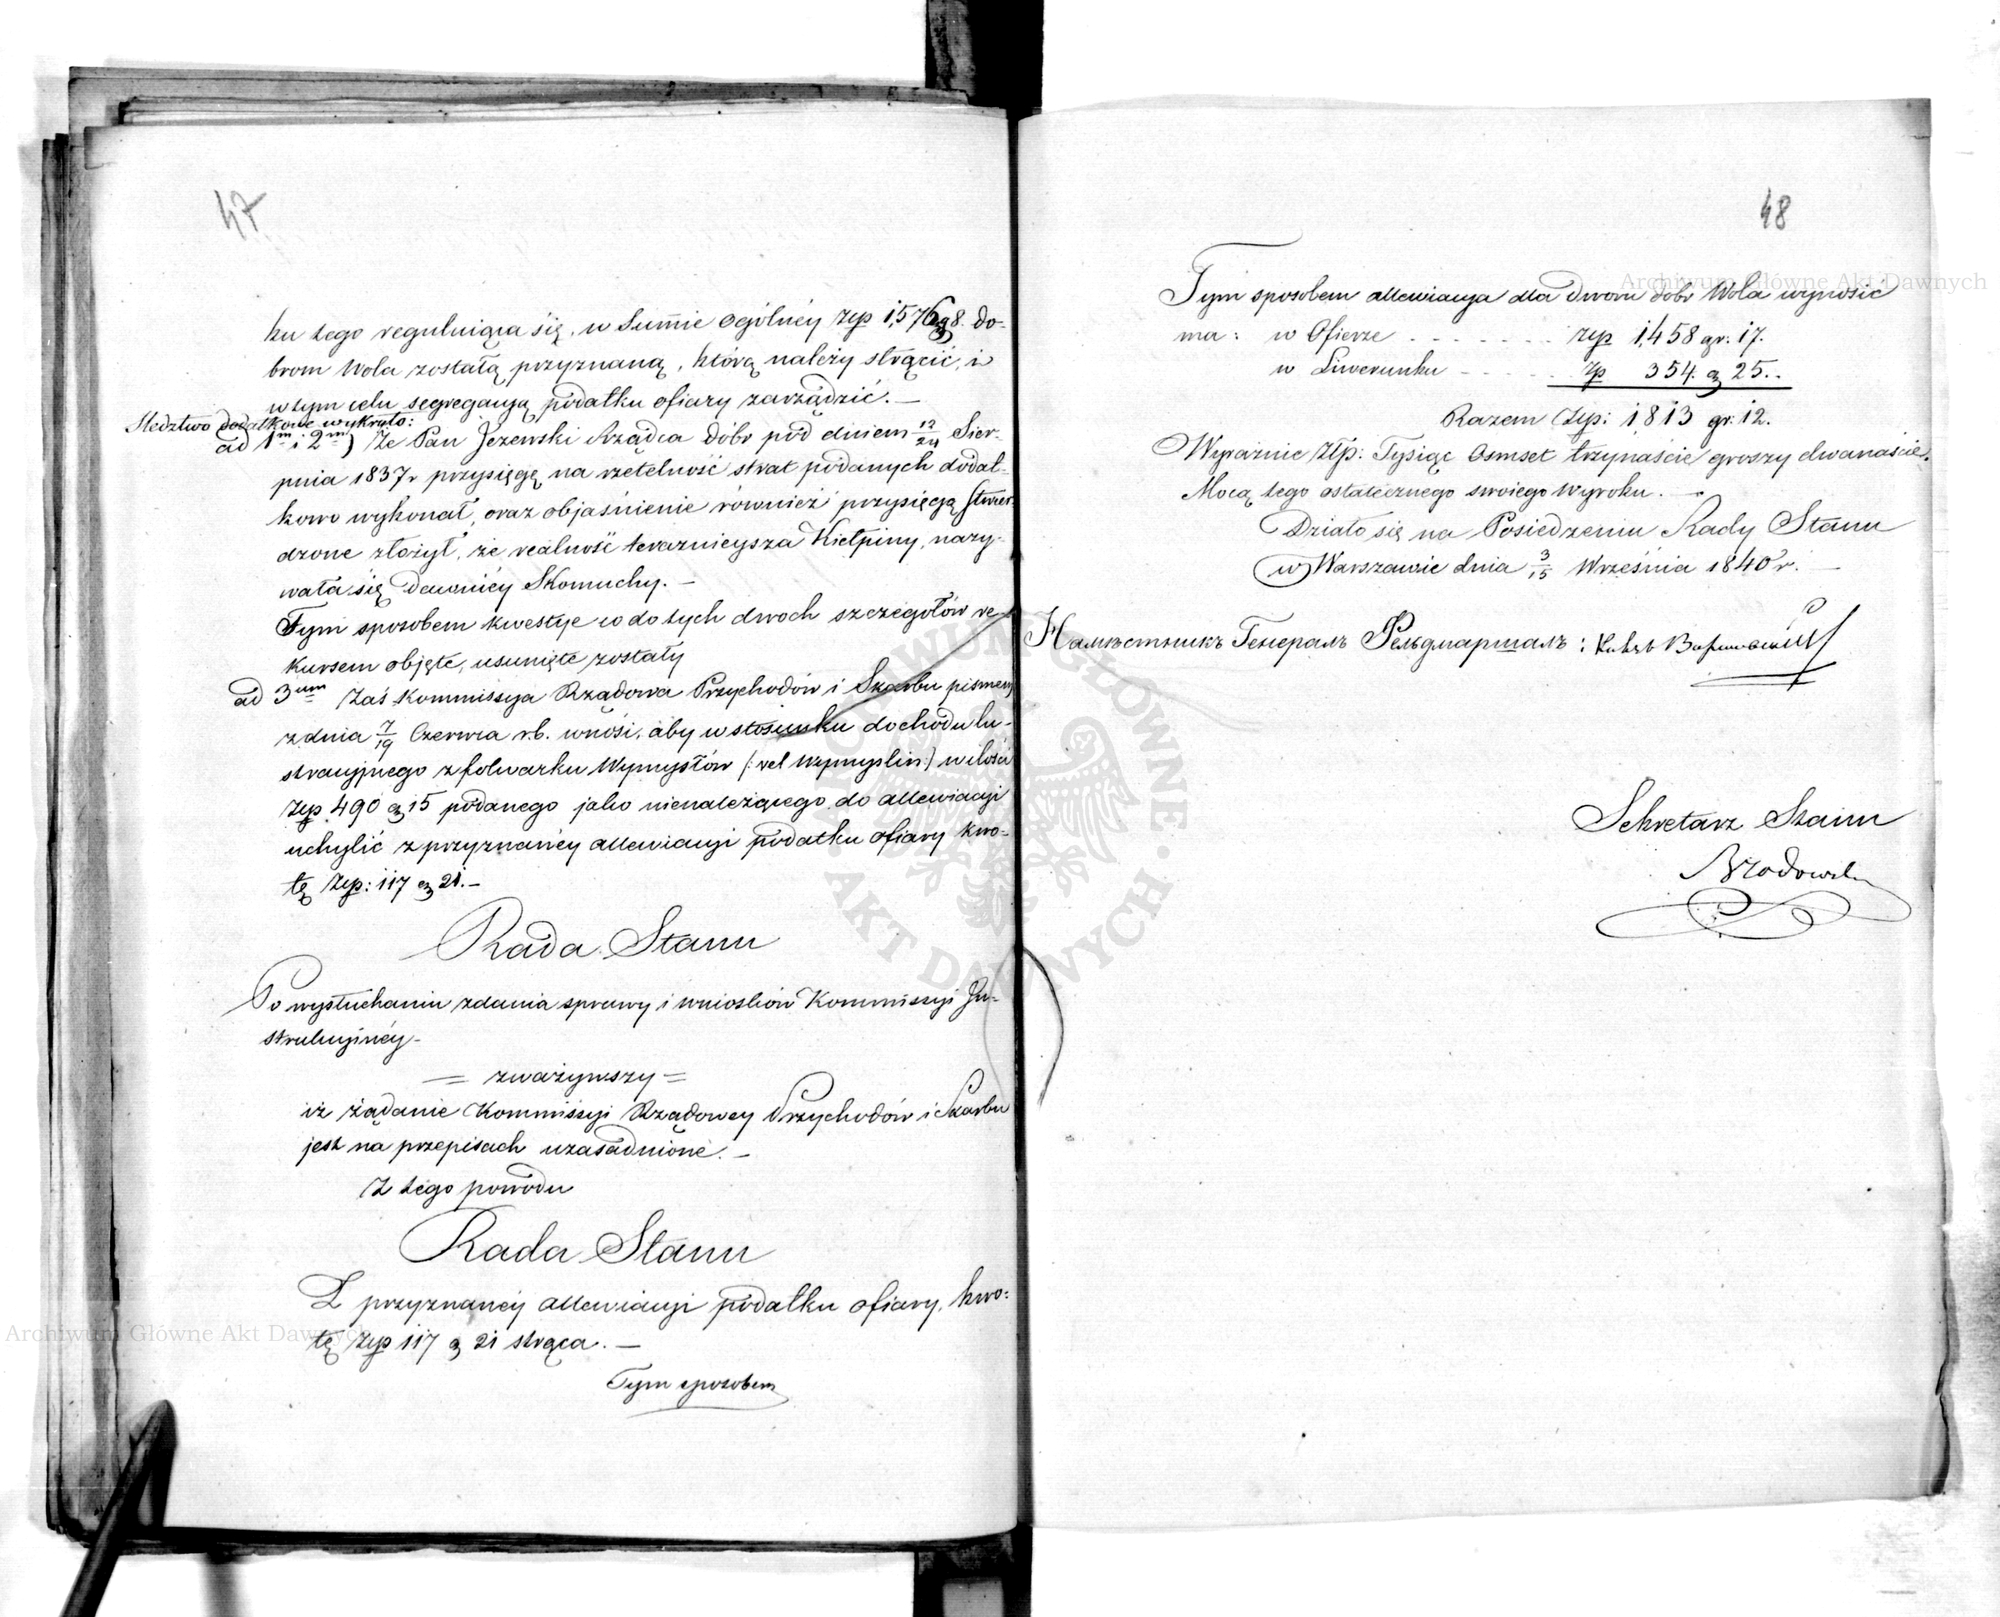 47
ku tego regulująca się, w Summie ogólnéy złp 1,576 g 8. do-
brom Wola została przyznaną, którą należy strącić, i
w tym celu segregacyą podatku ofiary zarządzić. —
Śledztwo dodatkowe wykryło:
ad 1m i 2m) Że Pan Jeżewski Rządca dóbr pod dniem 12/24 Sier-
pnia 1837 r przysięgę na rzetelność strat podanych dodat-
kowo wykonał, oraz objaśnienie również przysięgą stwier-
dzone złożył, że realność teraznieysza Kiełpiny, nazy-
wała się dawniéy Skomuchy. —
Tym sposobem kwestye co do tych dwoch szczegółów re-
kursem objęte, usunięte zostały
ad 3um Zaś Kommissya Rządowa Przychodów i Skarbu pismem
z dnia 7/19 Czerwca r.b. wnosi, aby w stosunku dochodu lu-
stracyjnego z folwarku Wymysłów (: vel Wymyslin :) w ilości
złp. 490 g 15 podanego jako nienależącego do allewiacyi
uchylić z przyznanéy allewiacyi podatku ofiary kwo-
tę złp: 117 g 21. —
Rada Stanu
Po wysłuchaniu zdania sprawy i wniosków Kommissyi In-
strukcyjnéy —
= zważywszy =
iż żądanie Kommissyi Rządowey Przychodów i Skarbu
jest na przepisach uzasadnione. —
Z tego powodu
Rada Stanu
Z przyznanéy allewiacyi podatku ofiary, kwo-
tę złp 117 g 21 strąca. —
Tym sposobem
48
Tym sposobem allewiacya dla dworu dóbr Wola wynosić
ma: w Ofierze . . . . . . . złp 1,458 gr: 17.
w Liwerunku - - - - - - złp 354. g 25..
Razem Złp: 1,813 gr: 12.
Wyraznie Złp: Tysiąc Osmset trzynaście groszy dwanaście.
Mocą tego ostatecznego swoiego Wyroku. —
Działo się na Posiedzeniu Rady Stanu
w Warszawie dnia 3/15 Września 1840 r. —
Намѣстникъ Генералъ Фельдмаршалъ: Князь Варшавскій
Sekretarz Stanu
Brzodowski
Archiwum Główne Akt Dawnych
Archiwum Główne Akt Dawnych